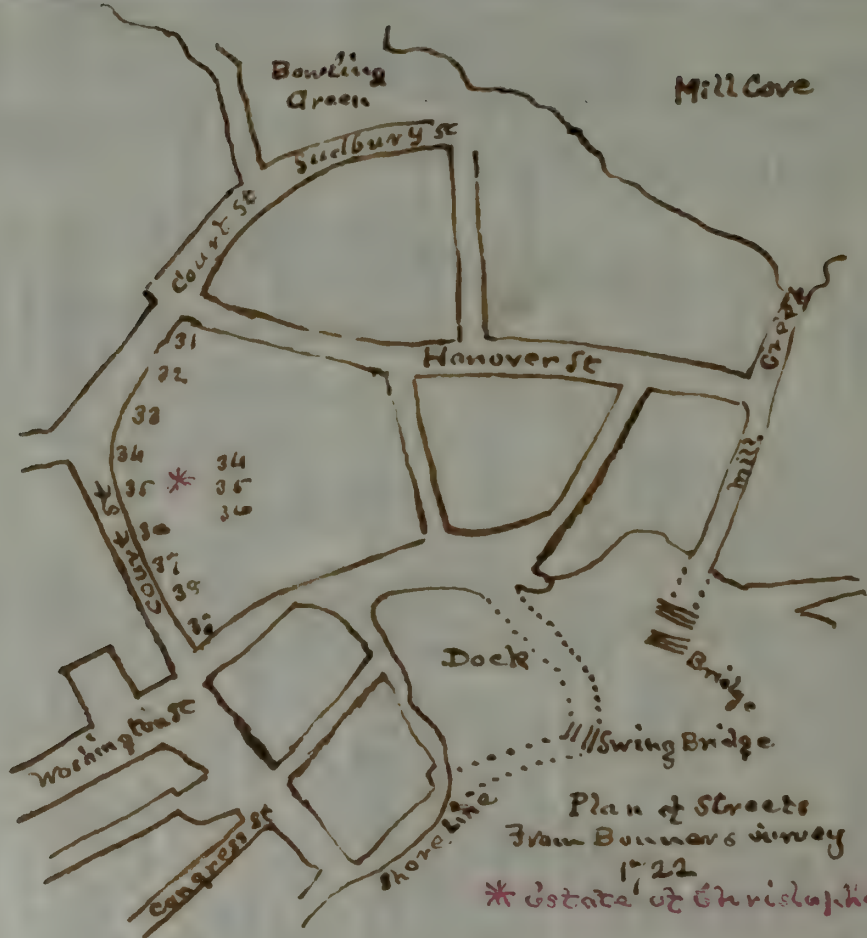 Bowling
Green
Mill Cove
Sudbury St
Court St
Hanover St
31
32
33
34
35
36
37
38
34
35
36
Court St
Mill
Creek
Dock
Bridge
Swing Bridge
Washington St
Congress St
Shore Line
Plan of Streets
From Bonners survey
1722
* Estate of